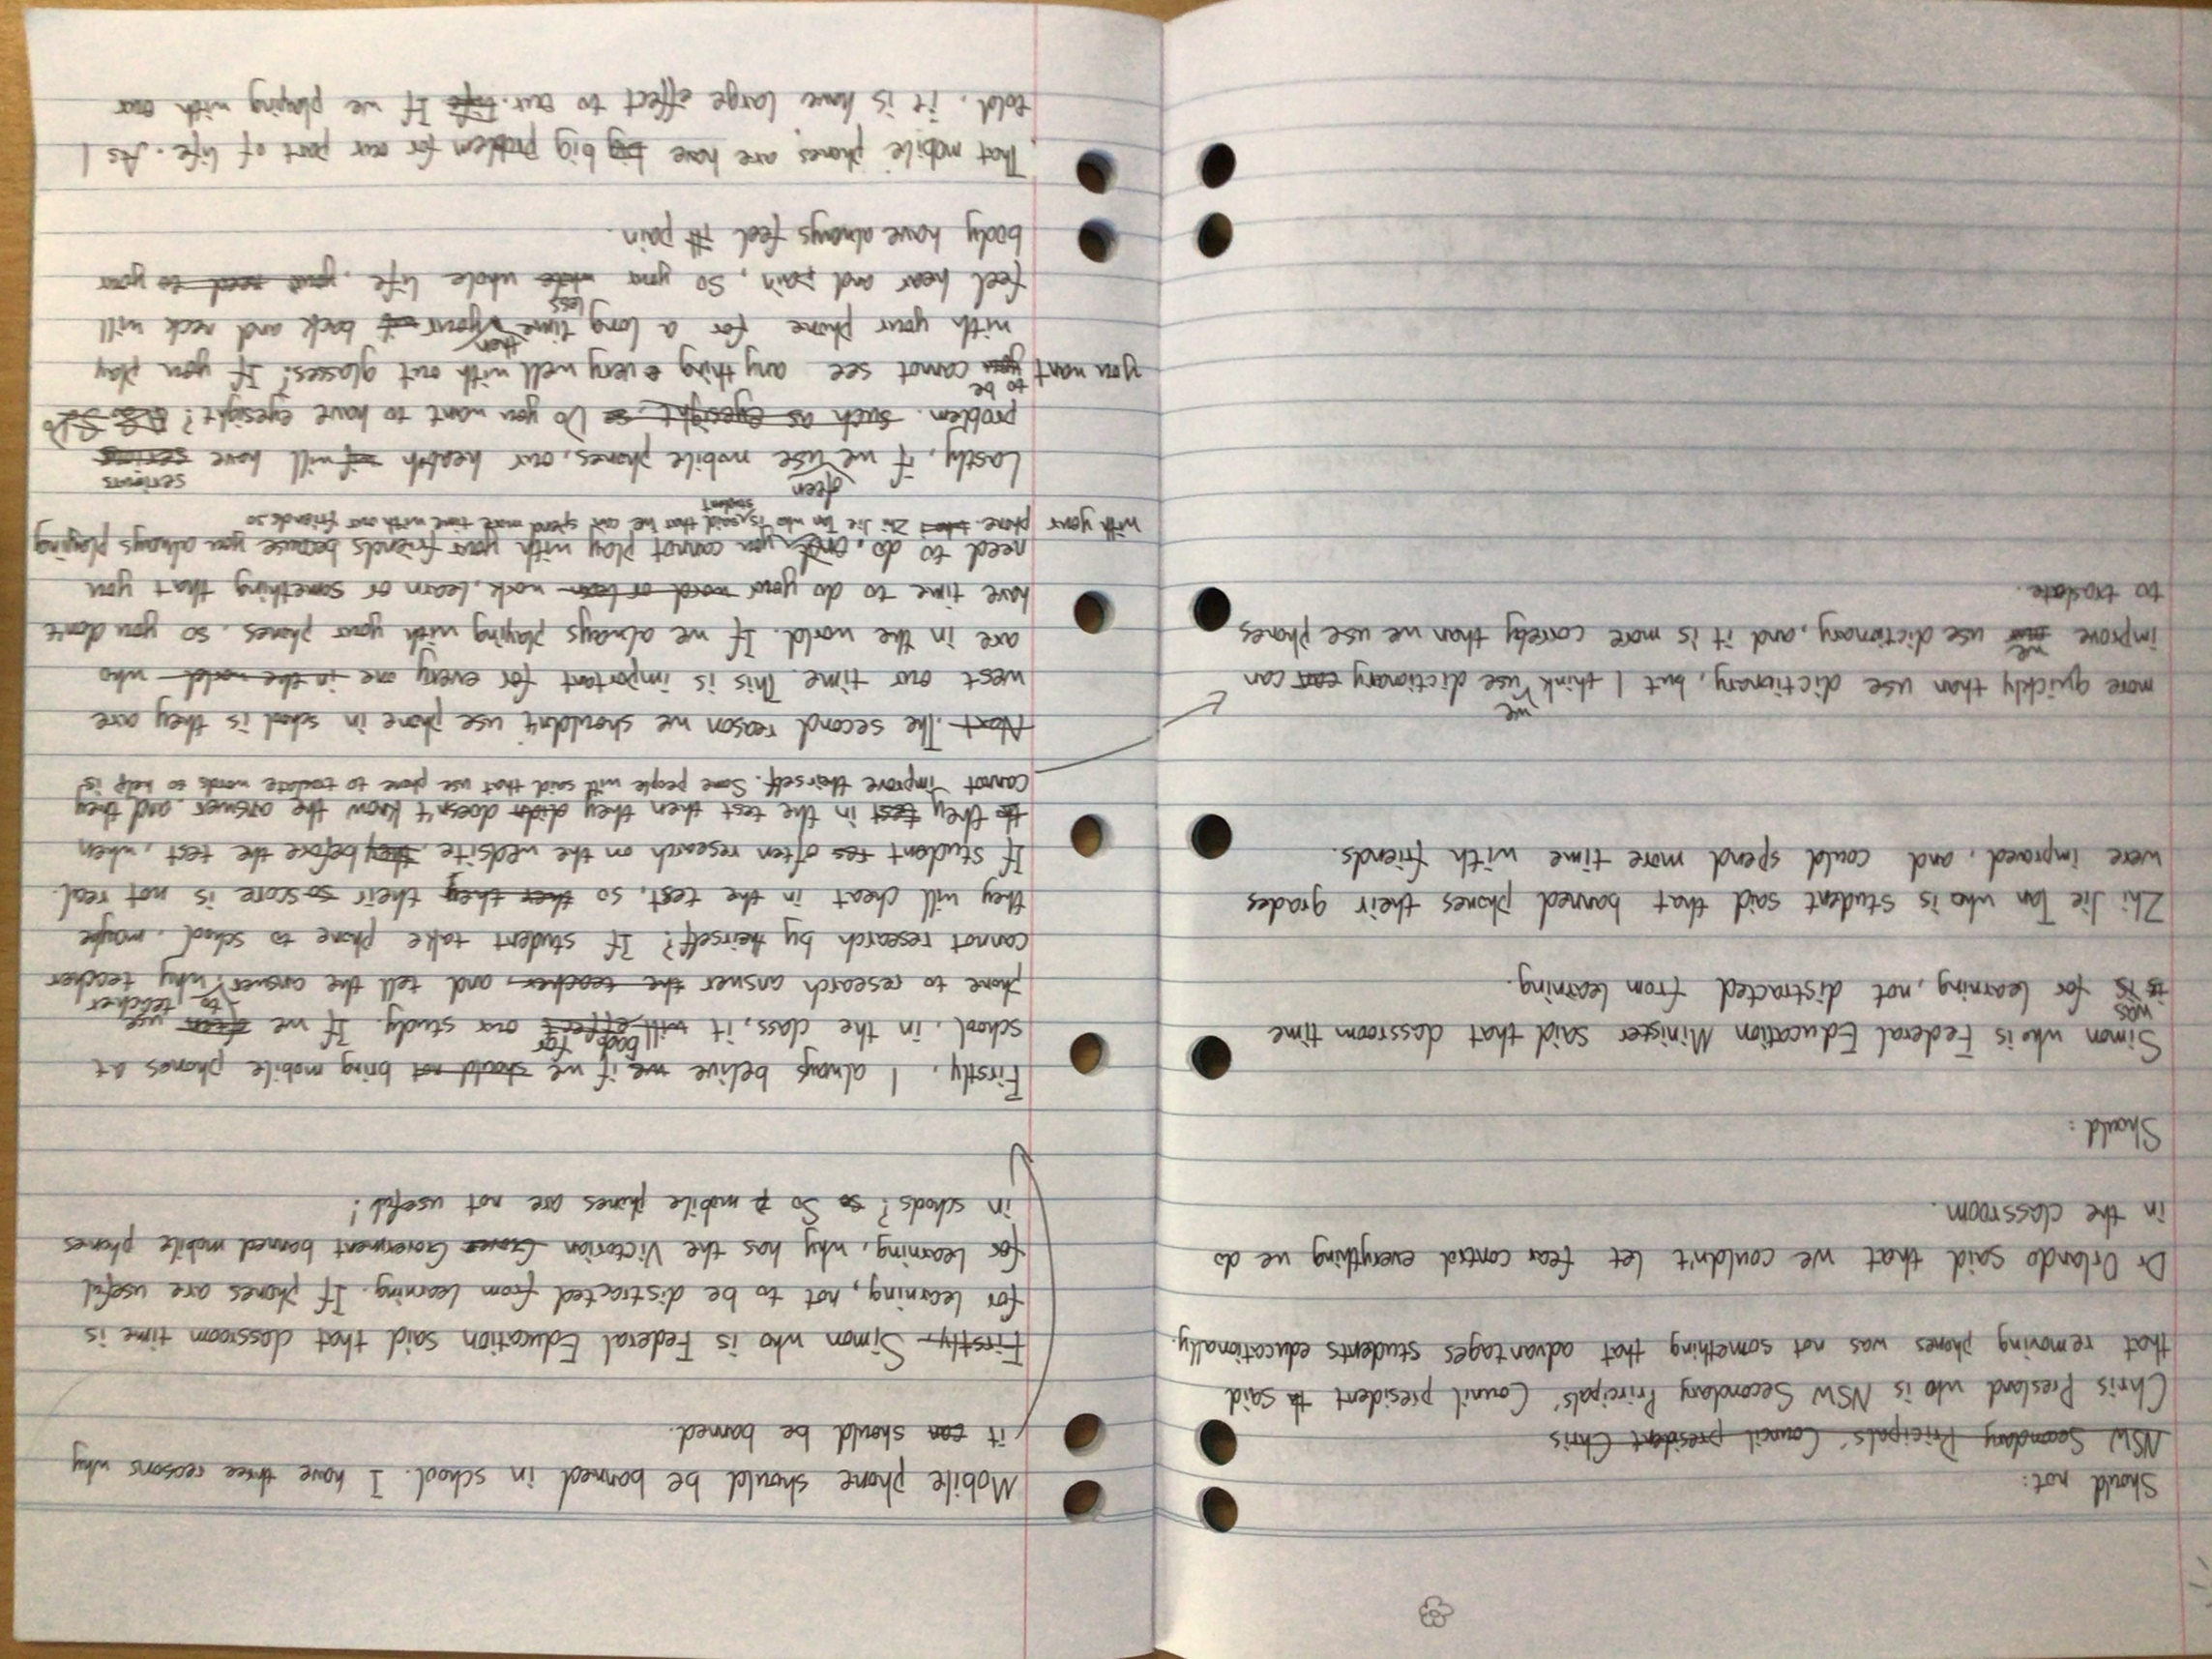 Should not:
NSW Secondary Pricipals' Council president Chris
Chris Presland who is NSW Secondary Principals' Council president said
that removing phones was not something that advantages students educationally.
Dr Orlando said that we couldn't let fear control everything we do
in the classroom.
Should:
Simon who is Federal Education Minister said that classroom time
was
is for learning, not distracted from learning.
Zhi Jie Tan who is student said that banned phones their grades
were improved, and could spend more time with friends.
we
more quickly than use dictionary, but, I think use dictionary can can
improve use dictionary, and it is more correby than we use phones
we
to traslate.
Mobile phone should be banned in school. I have three reasons why
it can should be banned.
Firstly Simon who is Federal Education said that classroom time is
for learning, not to be distracted from learning. If phones are useful
for learning, why has the Victorian Goverment banned mobile phones
in schools? So mobile phones are not useful!
Firstly, I always belive if we should not bring mobile phones at
bad for
school, in the class, it will effect our study. If we often use
to teacher
phone to research answer the teacher, and tell the answer, why teacher
cannot research by theirself? If student take phone to school, maybe
they will cheat in the test, so then they their score is not real.
If student often research on the wedsite, they before the test, when
they test in the test then they didn doesn't know the answer, and they
cannot improve theirself. Some people will said that use phone to traslate words to help is
Next. The second reason we shouldn't use phone in school is they are
west our time. This is important for every one in the world who
are in the world. If we always playing with your phones, so you don't
have time to do your word or lean work, learn or something that you
need to do, and you cannot play with your friends because you always playing
with your phone. Zhi Jie Tan who is said that he can spend more time with our friends so
student
often
serious
Lastly, if we use mobile phones, our health if will have serious
problem. such as eyesight Do you want to have eyesight? Do
to be
you want you cannot see any thing every well with out glasses? If you play
then
with your phone for a long time your back and neck will
less
feel hear and pain, so your whole life, your need to your
body have always feel pain.
That mobile phones are have big big problem for our part of life. As I
told, it is have large effect to our life If we playing with our